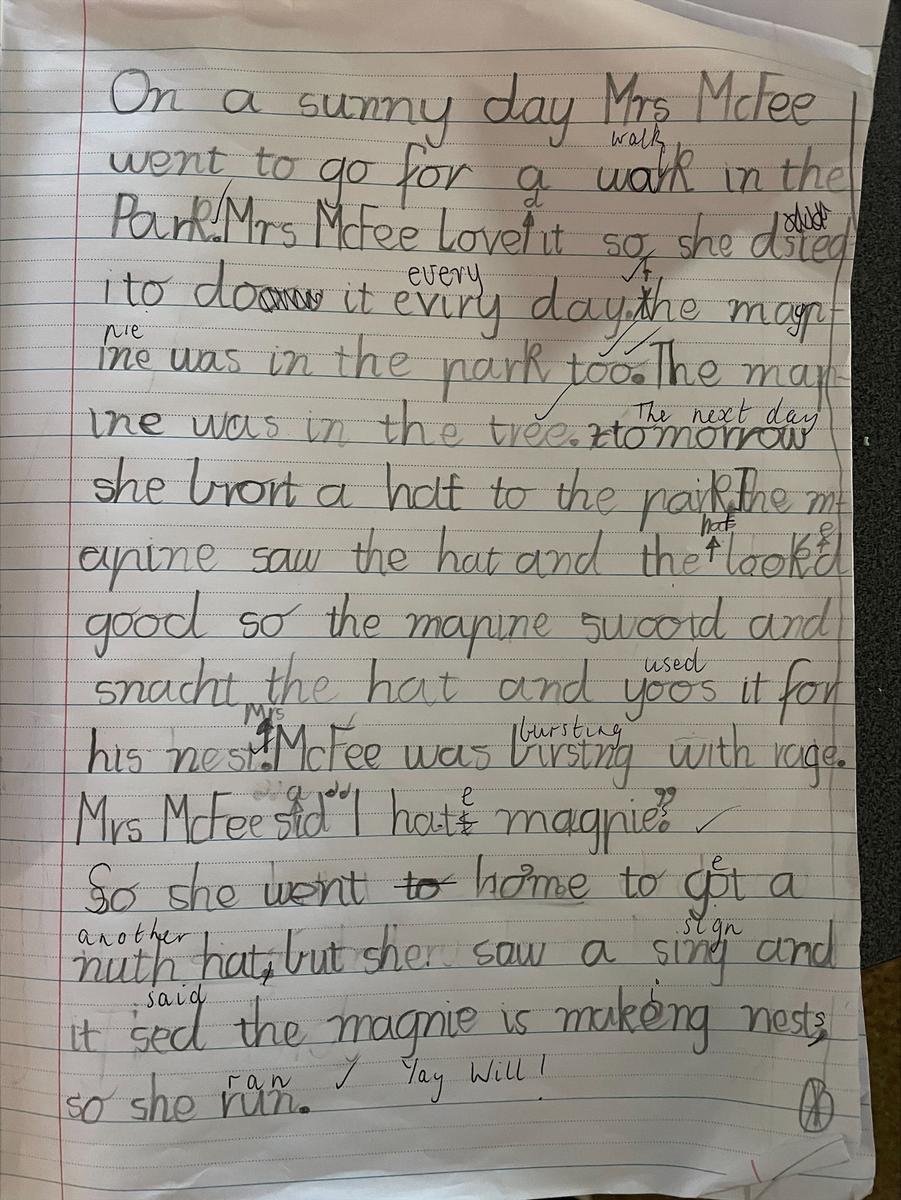 On a sunny day Mrs McFee
walk
went to go for a walk in the
d
Park. Mrs McFee Love it so she
every
to do it eviry day. the magp
pie
ine was in the park too. The map
The next day
ine was in the tree. tomorrow
she brort a hat to the park. The m
hat e
apine saw the hat and the lookd
good so the mapine swootd and
used
snacht the hat and yoos it for
Mrs bursting
his nest. McFee was birstng with rage.
a e
Mrs McFee sid "I hat magpie."
e
So she went to home to got a
another sign
nuth hat, but she saw a sing and
said i
it sed the magnie is makeng nests,
ran ✓ Yay Will!
so she run.